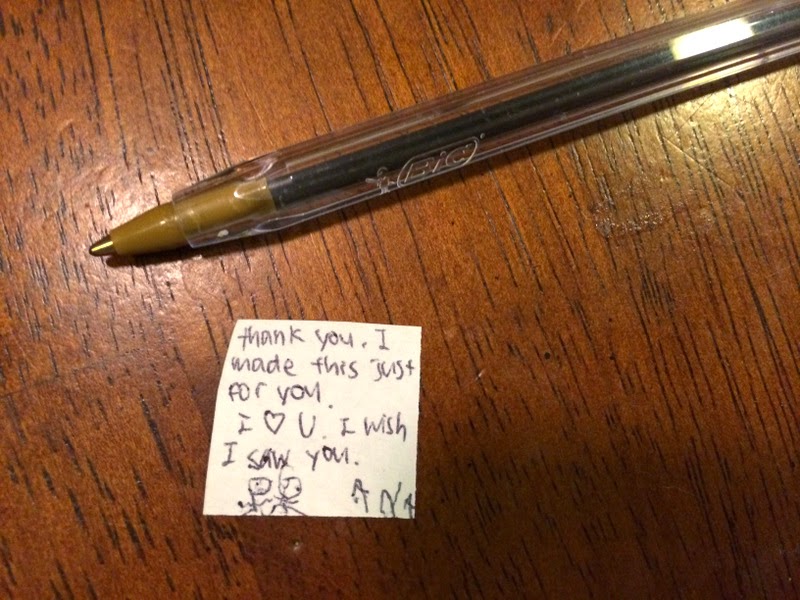 BIC
thank you. I
made this just
for you.
I ♡ U. I wish
I saw you.